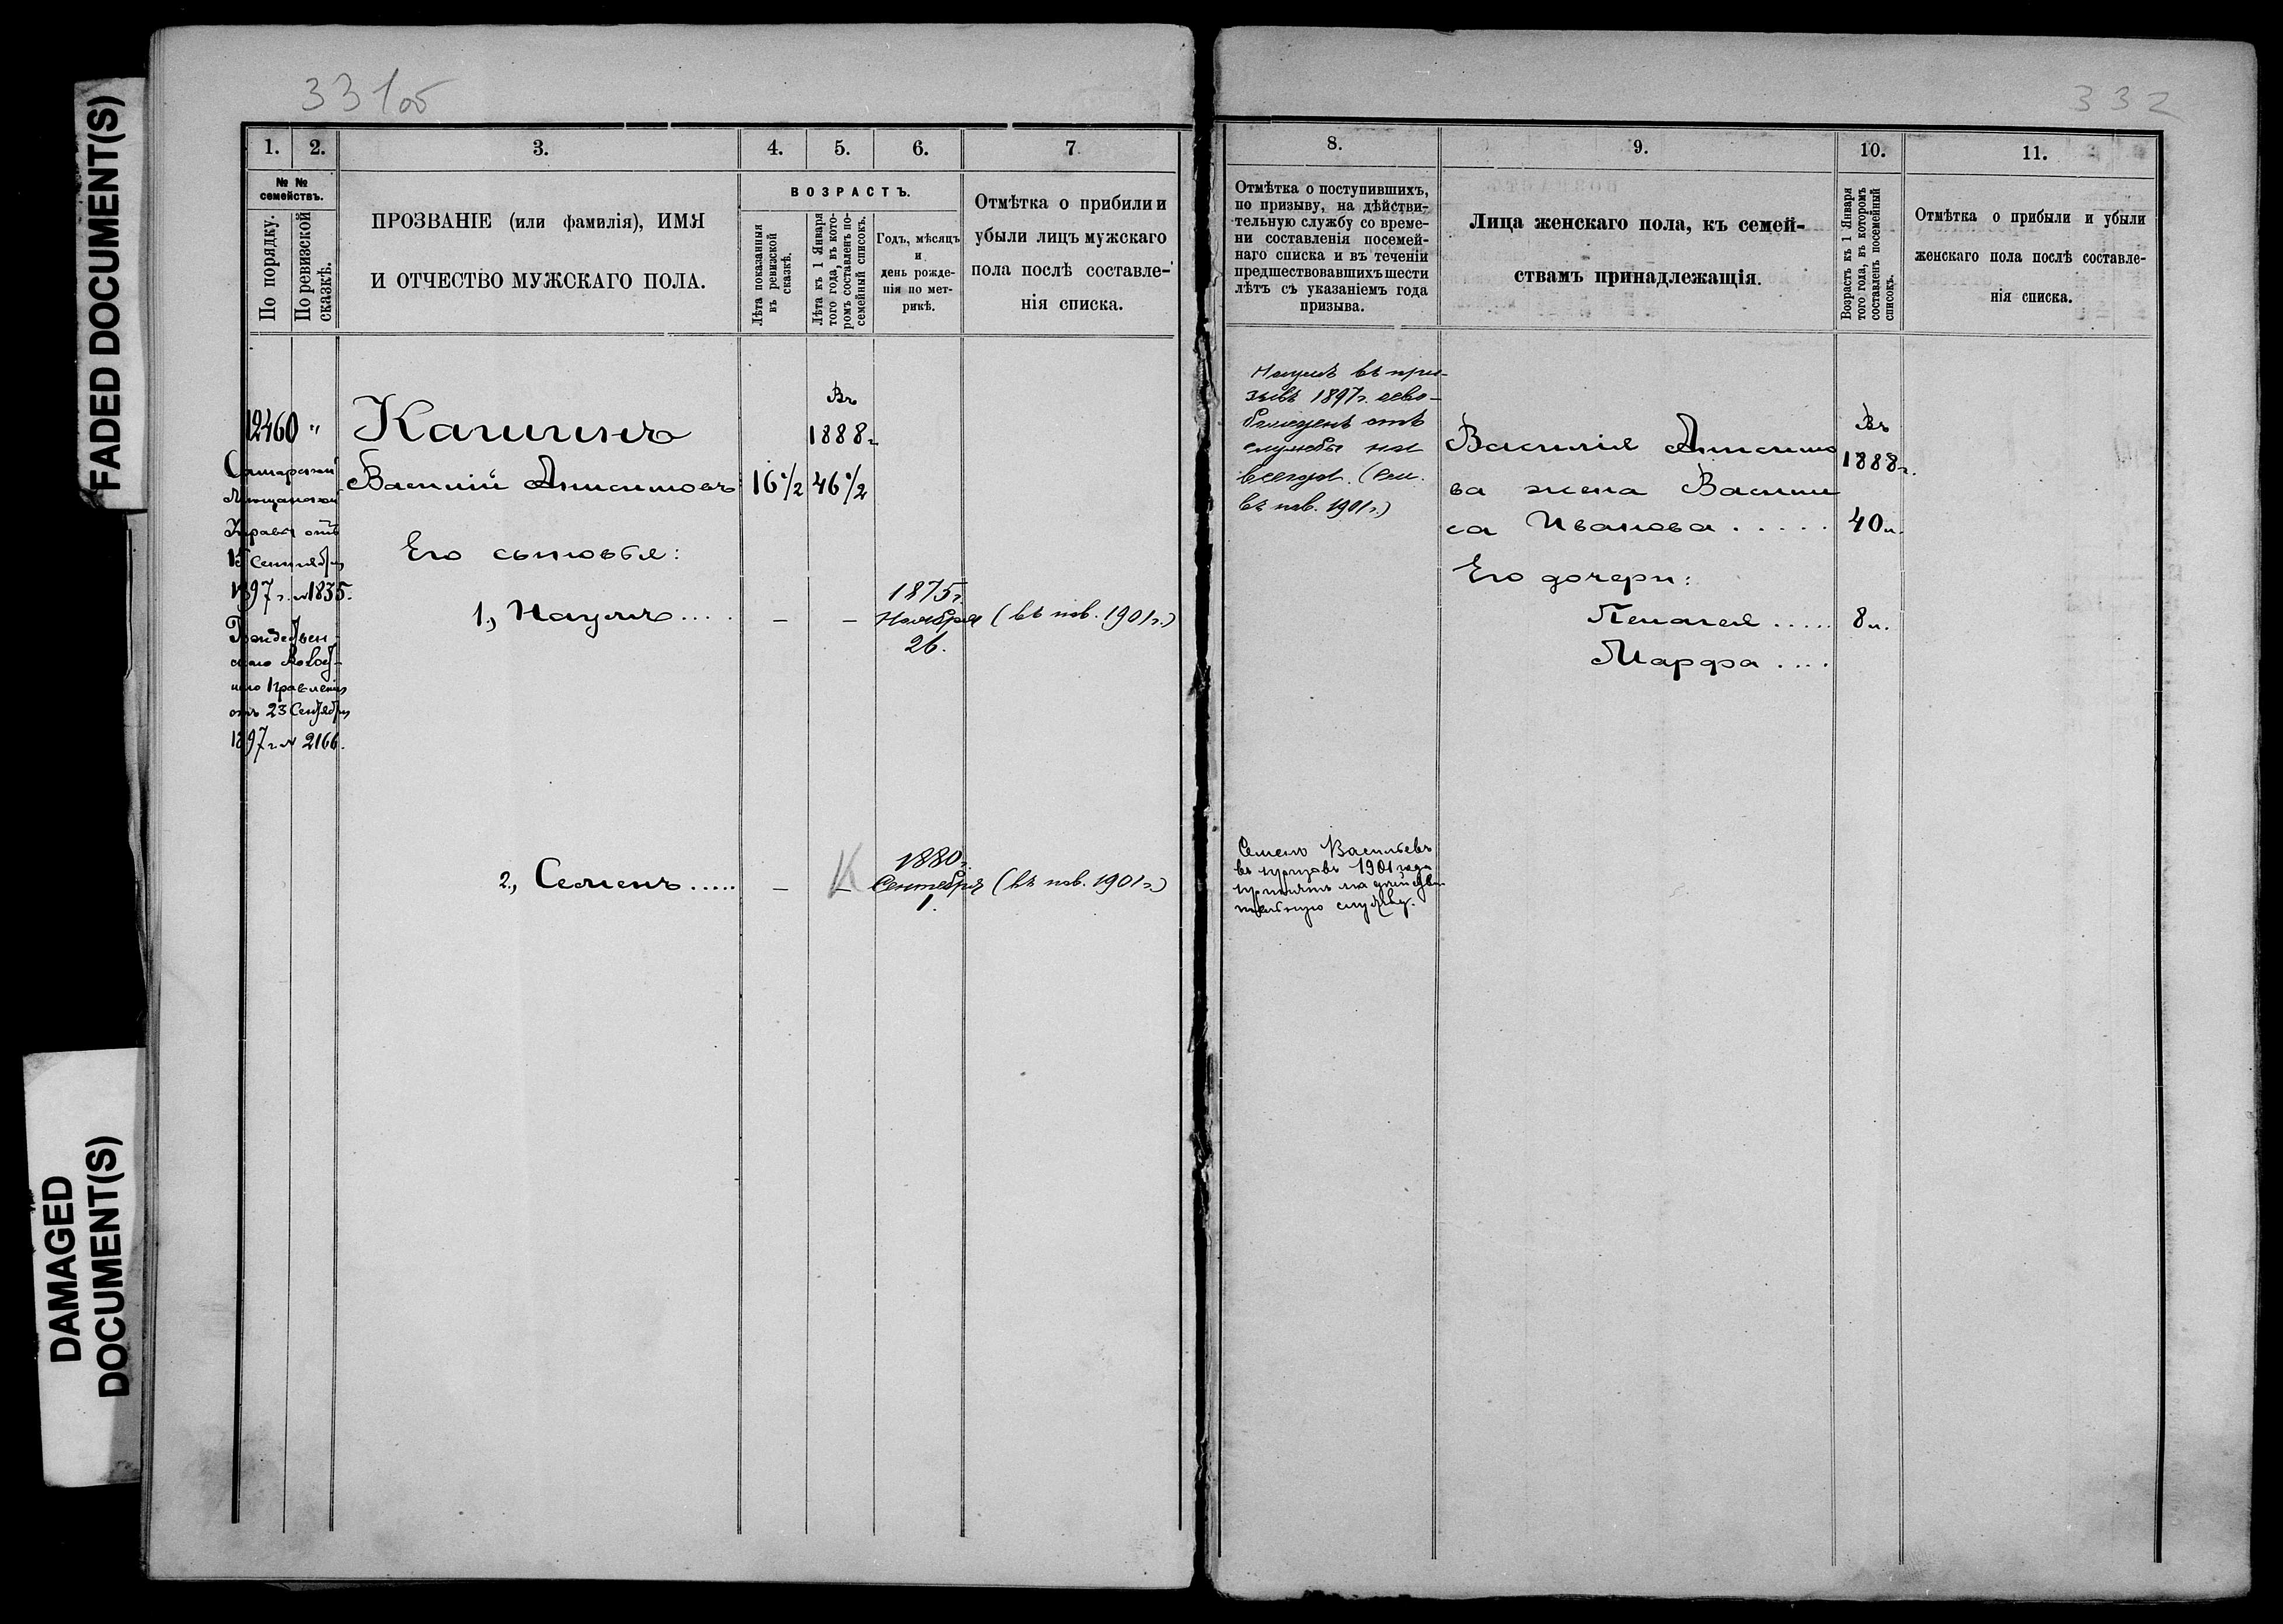 FADED DOCUMENT(S)
DAMAGED
DOCUMENT(S)
331об
1.
2.
3.
4.
5.
6.
7
№ №
семействъ.
По порядку.
По ревизской
сказкѣ.
ПРОЗВАНІЕ (или фамилія), ИМЯ
И ОТЧЕСТВО МУЖСКАГО ПОЛА.
ВОЗРАСТЪ.
Лѣта показанныя
въ ревизской
сказкѣ.
Лѣта къ 1 Января
того года, въ кото-
ромъ составленъ по-
семейный списокъ.
Годъ, мѣсяцъ
и
день рожде-
нія по мет-
рикѣ.
Отмѣтка о прибили и
убыли лицъ мужскаго
пола послѣ составле-
нія списка.
12460 "
Самарской
Мѣщанской
Управы отъ
15 Сентября
1897 г. № 1835.
скаго Волост-
наго Правленія
отъ 23 Сентября
1897 г. № 2166.
Кашинъ
Василій Анисимовъ
16 1/2
Въ
1888 г.
46 1/2
Его сыновья:
1., Наумъ ....
–
–
1875 г.
Ноября
26.
(въ пов. 1901 г.)
2., Семенъ .....
–
–
1880 г.
Сентября
1.
(въ пов. 1901 г.)
332
8.
9.
10.
11.
Отмѣтка о поступившихъ,
по призыву, на дѣйстви-
тельную службу со време-
ни составленія посемей-
наго списка и въ теченіи
предшествовавшихъ шести
лѣтъ съ указаніемъ года
призыва.
Лица женскаго пола, къ семей-
ствамъ принадлежащія.
Возрастъ къ 1 Января
того года, въ которомъ
составленъ посемейный
списокъ.
Отмѣтка о прибыли и убыли
женскаго пола послѣ составле-
нія списка.
Наумъ въ при-
зывѣ 1897 г. осво-
божденъ отъ
службы на
всегда. (
въ пов. 1901 г.)
Василія Анисимо
ва жена Васили
са Иванова .....
Въ
1888 г.
40 л.
Его дочери:
Пелагея .....
8 л.
Марфа ....
Семенъ Васильевъ
въ призывъ 1901 года
принятъ на дѣйстви-
тельную службу.